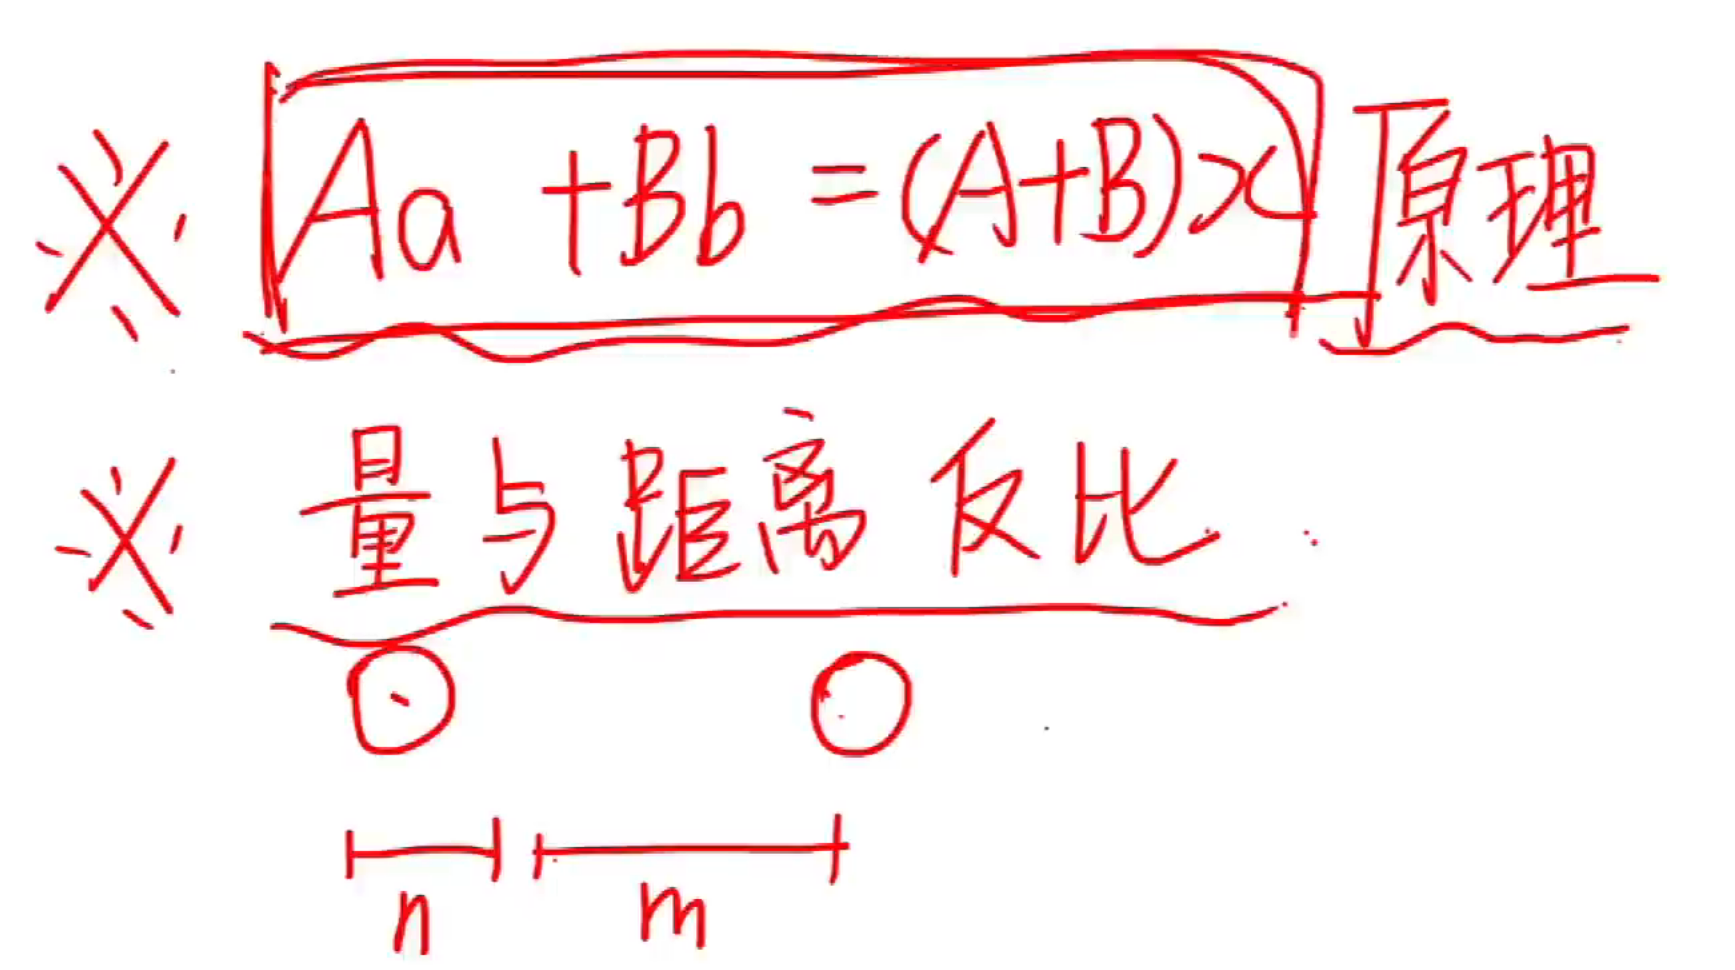 ※ Aa + Bb = (A+B)x 原理
※ 量与距离反比
n m